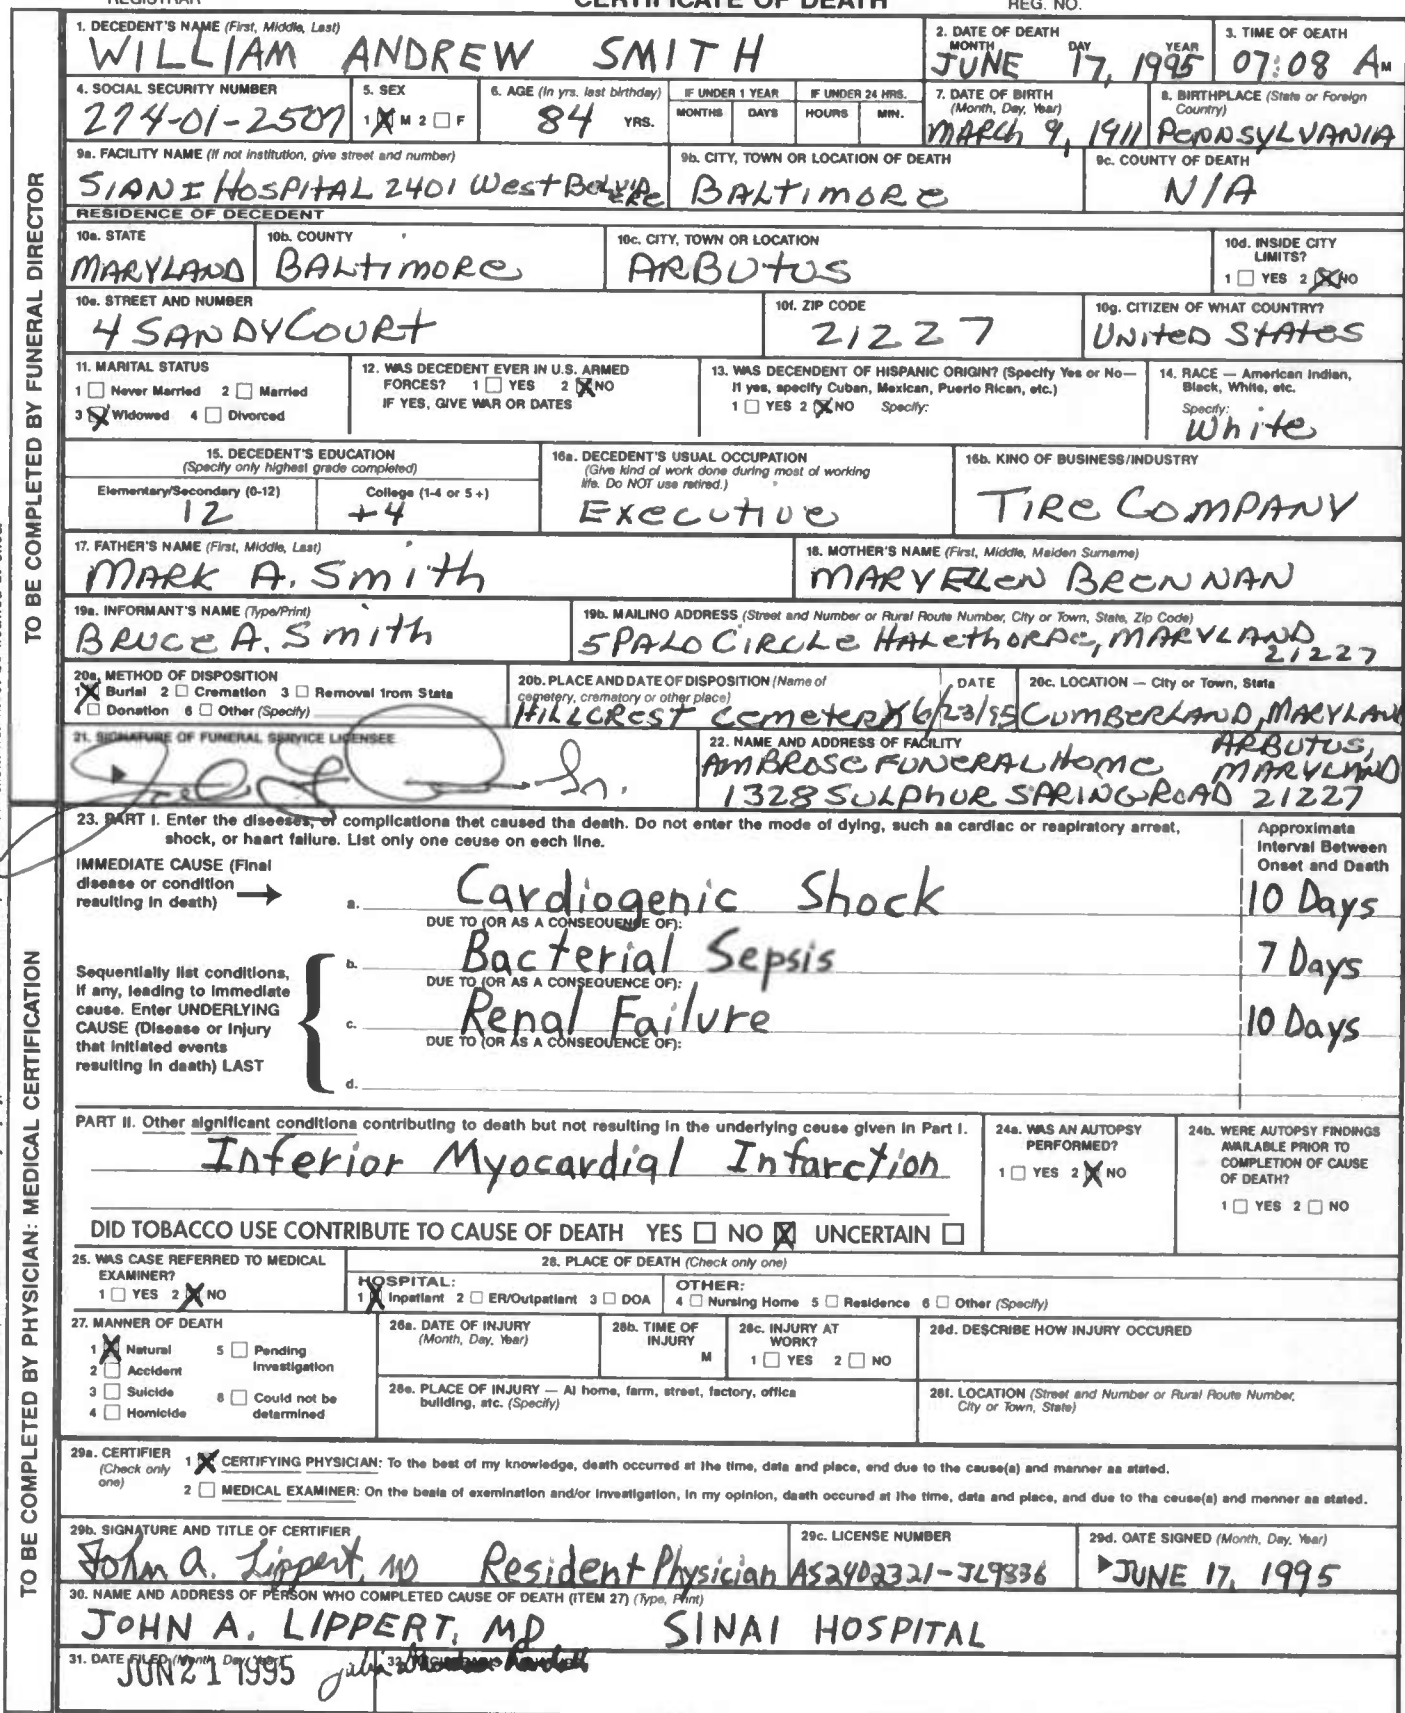 REGISTRAR CERTIFICATE OF DEATH REG. NO.
TO BE COMPLETED BY FUNERAL DIRECTOR
1. DECEDENT'S NAME (First, Middle, Last)
WILLIAM ANDREW SMITH
2. DATE OF DEATH
MONTH DAY YEAR
JUNE 17, 1995
3. TIME OF OEATH
07:08 AM
4. SOCIAL SECURITY NUMBER
274-01-2507
5. SEX
1 X M 2 ☐ F
6. AGE (In yrs. last birthday)
84 YRS.
IF UNDER 1 YEAR
MONTHS DAYS
IF UNDER 24 HRS.
HOURS MIN.
7. DATE OF BIRTH
(Month, Day, Year)
MARCH 9, 1911
8. BIRTHPLACE (State or Foreign
Country)
PENNSYLVANIA
9a. FACILITY NAME (If not institution, give street and number)
SIANI HOSPITAL 2401 West
9b. CITY, TOWN OR LOCATION OF DEATH
BALTIMORE
9c. COUNTY OF DEATH
N/A
RESIDENCE OF DECEDENT
10a. STATE
MARYLAND
10b. COUNTY
BALTIMORE
10c. CITY, TOWN OR LOCATION
ARBUTUS
10d. INSIDE CITY
LIMITS?
1 ☐ YES 2 X NO
10e. STREET AND NUMBER
4 SANDY COURT
10f. ZIP CODE
21227
10g. CITIZEN OF WHAT COUNTRY?
UNITED STATES
11. MARITAL STATUS
1 ☐ Never Married 2 ☐ Married
3 X Widowed 4 ☐ Divorced
12. WAS DECEDENT EVER IN U.S. ARMED
FORCES? 1 ☐ YES 2 X NO
IF YES, GIVE WAR OR DATES
13. WAS DECENDENT OF HISPANIC ORIGIN? (Specify Yes or No—
If yes, specify Cuban, Mexican, Puerto Rican, etc.)
1 ☐ YES 2 X NO Specify:
14. RACE — American Indian,
Black, White, etc.
Specify:
White
15. DECEDENT'S EDUCATION
(Specify only highest grade completed)
Elementary/Secondary (0-12)
12
College (1-4 or 5+)
+4
16a. DECEDENT'S USUAL OCCUPATION
(Give kind of work done during most of working
life. Do NOT use retired.)
Executive
16b. KINO OF BUSINESS/INDUSTRY
TIRE COMPANY
17. FATHER'S NAME (First, Middle, Last)
MARK A. Smith
18. MOTHER'S NAME (First, Middle, Maiden Surname)
MARY ELLEN BRENNAN
19a. INFORMANT'S NAME (Type/Print)
BRUCE A. Smith
19b. MAILINO ADDRESS (Street and Number or Rural Route Number, City or Town, State, Zip Code)
5 PALO CIRCLE HALETHORPE, MARYLAND
21227
20a. METHOD OF DISPOSITION
1 X Burial 2 ☐ Cremation 3 ☐ Removal from Stata
4 ☐ Donation 6 ☐ Other (Specify)
20b. PLACE AND DATE OF DISPOSITION (Name of
cemetery, crematory or other place)
HILLCREST CEMETERY
DATE
6/23/95
20c. LOCATION — City or Town, Stata
CUMBERLAND, MARYLAND
21. SIGNATURE OF FUNERAL SERVICE LICENSEE
22. NAME AND ADDRESS OF FACILITY
AMBROSE FUNERAL HOME
1328 SULPHUR SPRING ROAD
ARBUTUS,
MARYLAND
21227
TO BE COMPLETED BY PHYSICIAN: MEDICAL CERTIFICATION
23. PART I. Enter the diseases, or complications thet caused tha death. Do not enter the mode of dying, such aa cardiac or reapiratory arreat,
shock, or haart failure. List only one ceuse on eech line.
Approximata
Interval Between
Onset and Death
IMMEDIATE CAUSE (Final
disease or condition
resulting in death)
a. Cardiogenic Shock 10 Days
DUE TO (OR AS A CONSEQUENCE OF):
Sequentially list conditions,
if any, leading to Immediate
cause. Enter UNDERLYING
CAUSE (Disease or Injury
that initiated events
resulting in daath) LAST
b. Bacterial Sepsis 7 Days
DUE TO (OR AS A CONSEQUENCE OF):
c. Renal Failure 10 Days
DUE TO (OR AS A CONSEQUENCE OF):
d.
PART II. Other aignificant conditiona contributing to death but not resulting in the underlying ceuse given in Part I.
Inferior Myocardial Infarction
DID TOBACCO USE CONTRIBUTE TO CAUSE OF DEATH YES ☐ NO X UNCERTAIN ☐
24a. WAS AN AUTOPSY
PERFORMED?
1 ☐ YES 2 X NO
24b. WERE AUTOPSY FINDINGS
AVAILABLE PRIOR TO
COMPLETION OF CAUSE
OF DEATH?
1 ☐ YES 2 ☐ NO
25. WAS CASE REFERRED TO MEDICAL
EXAMINER?
1 ☐ YES 2 X NO
26. PLACE OF DEATH (Check only one)
HOSPITAL:
1 X Inpatiant 2 ☐ ER/Outpatiant 3 ☐ DOA
OTHER:
4 ☐ Nursing Home 5 ☐ Residence 6 ☐ Other (Specify)
27. MANNER OF DEATH
1 X Natural 5 ☐ Pending
Investigation
2 ☐ Accident
3 ☐ Suicide 8 ☐ Could not be
determined
4 ☐ Homicide
28a. DATE OF INJURY
(Month, Day, Year)
28b. TIME OF
INJURY
M
28c. INJURY AT
WORK?
1 ☐ YES 2 ☐ NO
28d. DESCRIBE HOW INJURY OCCURED
28e. PLACE OF INJURY — Al home, farm, street, factory, offica
building, atc. (Specify)
28f. LOCATION (Street and Number or Rural Route Number,
City or Town, State)
29a. CERTIFIER
(Check only
one)
1 X CERTIFYING PHYSICIAN: To the best of my knowledge, death occurred at the time, data and place, end due to the cause(a) and manner aa atated.
2 ☐ MEDICAL EXAMINER: On the beaia of exemination and/or Invealigation, in my opinion, daath occured at the time, data and place, and due to tha ceuse(a) and menner aa stated.
29b. SIGNATURE AND TITLE OF CERTIFIER
John A. Lippert, MD Resident Physician
29c. LICENSE NUMBER
AS2402321-JL9836
29d. OATE SIGNED (Month, Day, Year)
JUNE 17, 1995
30. NAME AND ADDRESS OF PERSON WHO COMPLETED CAUSE OF DEATH (ITEM 27) (Type, Print)
JOHN A. LIPPERT, MD SINAI HOSPITAL
31. DATE FILED (Month, Day, Year)
JUN 21 1995
32.